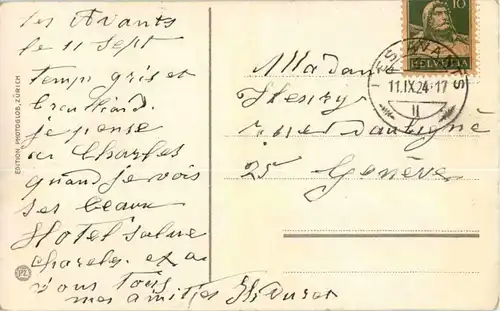 Les Avants
le 11 Sept
temps gris et
brouillard.
je pense
au Charles
quand je vois
ses beaux
Hotel salue
Charles et a
vous tous
mes amitiés H. Duret
Madame
Henry
rue d'aubigné
25
Genève
10
HELVETIA
LES AVANTS
11.IX.24-17
EDITION PHOTOGLOB, ZÜRICH
PZ